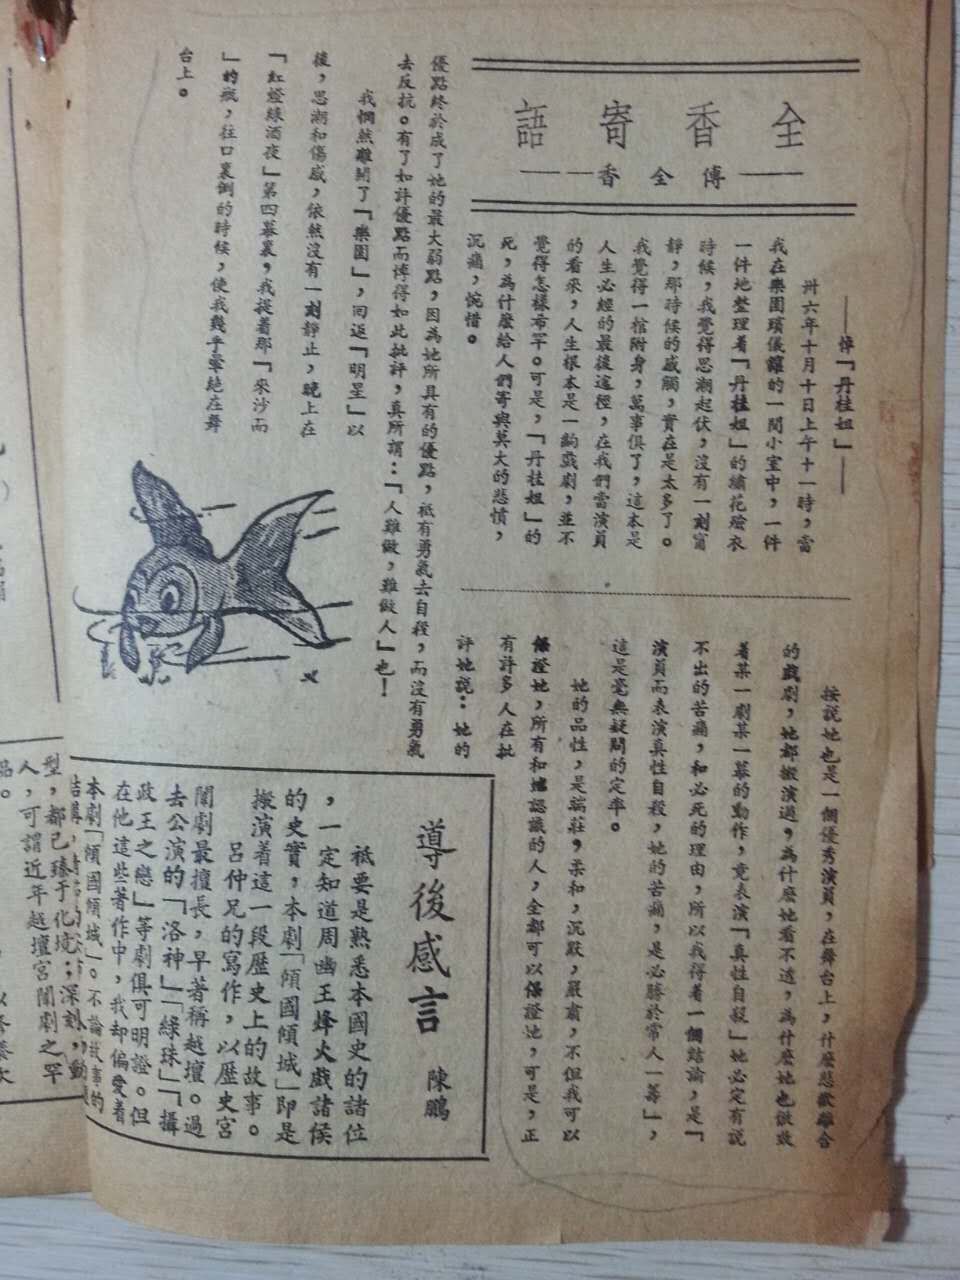 全香寄語
——傅全香——
——悼「丹桂姐」——
卅六年十月十日上午十一時，當
我在樂園殯儀館的一間小室中，一件
一件地整理着「丹桂姐」的繡花殮衣
時候，我覺得思潮起伏，沒有一刻甯
靜，那時候的感觸，實在是太多了。
我覺得一棺附身，萬事俱了，這本是
人生必經的最後途徑，在我們當演員
的看來，人生根本是一齣戲劇，並不
覺得怎樣希罕。可是，「丹桂姐」的
死，為什麼給人們寄與莫大的悲憤，
沉痛，惋惜。
按說她也是一個優秀演員，在舞台上，什麼悲歡離合
的戲劇，她都搬演過，為什麼她看不透，為什麼她也倣效
着某一劇某一幕的動作，竟表演「真性自殺」她必定有說
不出的苦痛，和必死的理由，所以我得着一個結論，是「
演員而表演真性自殺，她的苦痛，是必勝於常人一籌」，
這是毫無疑問的定率。
她的品性，是端莊，柔和，沉默，嚴肅，不但我可以
保證她，所有和她認識的人，全都可以保證她，可是，正
有許多人在批
評她說：她的
優點終於成了她的最大弱點，因為她所具有的優點，祗有勇氣去自殺，而沒有勇氣
去反抗。有了如許優點而博得如此批評，真所謂：「人難做，難做人」也！
我惘然離開了「樂園」，回返「明星」以
後，思潮和傷感，依然沒有一刻靜止，晚上在
「紅燈綠酒夜」第四幕裏，我提着那「來沙而
」的瓶，往口裏倒的時候，使我幾乎暈絕在舞
台上。
導後感言
陳鵬
祗要是熟悉本國史的諸位
，一定知道周幽王烽火戲諸侯
的史實，本劇「傾國傾城」即是
搬演着這一段歷史上的故事。
呂仲兄的寫作，以歷史宮
闈劇最擅長，早著稱越壇。過
去公演的「洛神」「綠珠」「攝
政王之戀」等劇俱可明證。但
在他這些著作中，我却偏愛着
本劇「傾國傾城」。不論故事的
型，都已臻于化境；深刻，動
人，可謂近年越壇宮闈劇之罕
品。